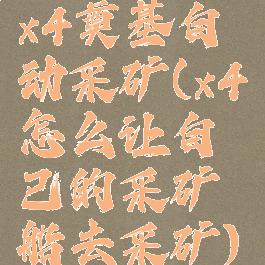 x4奠基自
动采矿(x4
怎么让自
己的采矿
船去采矿)